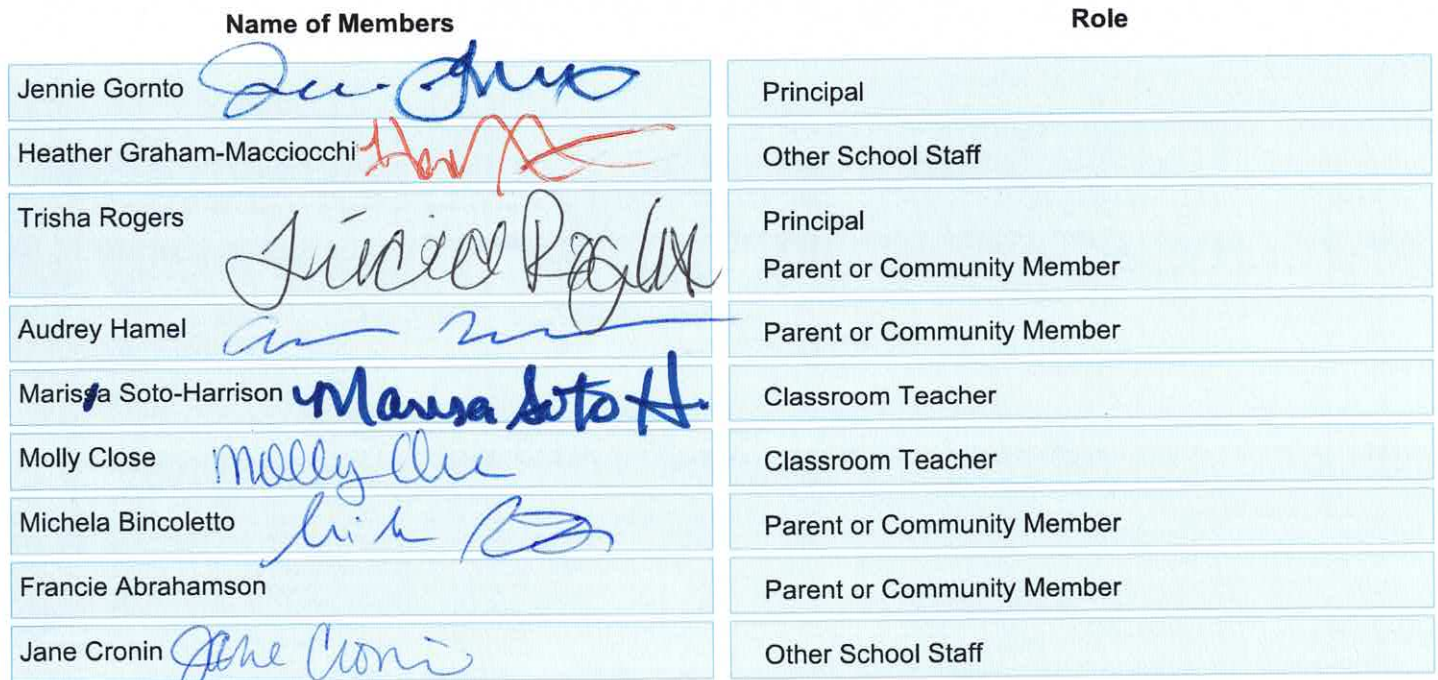 Name of Members Role
Jennie Gornto Principal
Heather Graham-Macciocchi Other School Staff
Trisha Rogers Principal
Parent or Community Member
Audrey Hamel Parent or Community Member
Marissa Soto-Harrison Marisa Soto H. Classroom Teacher
Molly Close Molly Classroom Teacher
Michela Bincoletto Parent or Community Member
Francie Abrahamson Parent or Community Member
Jane Cronin Jane Cronin Other School Staff